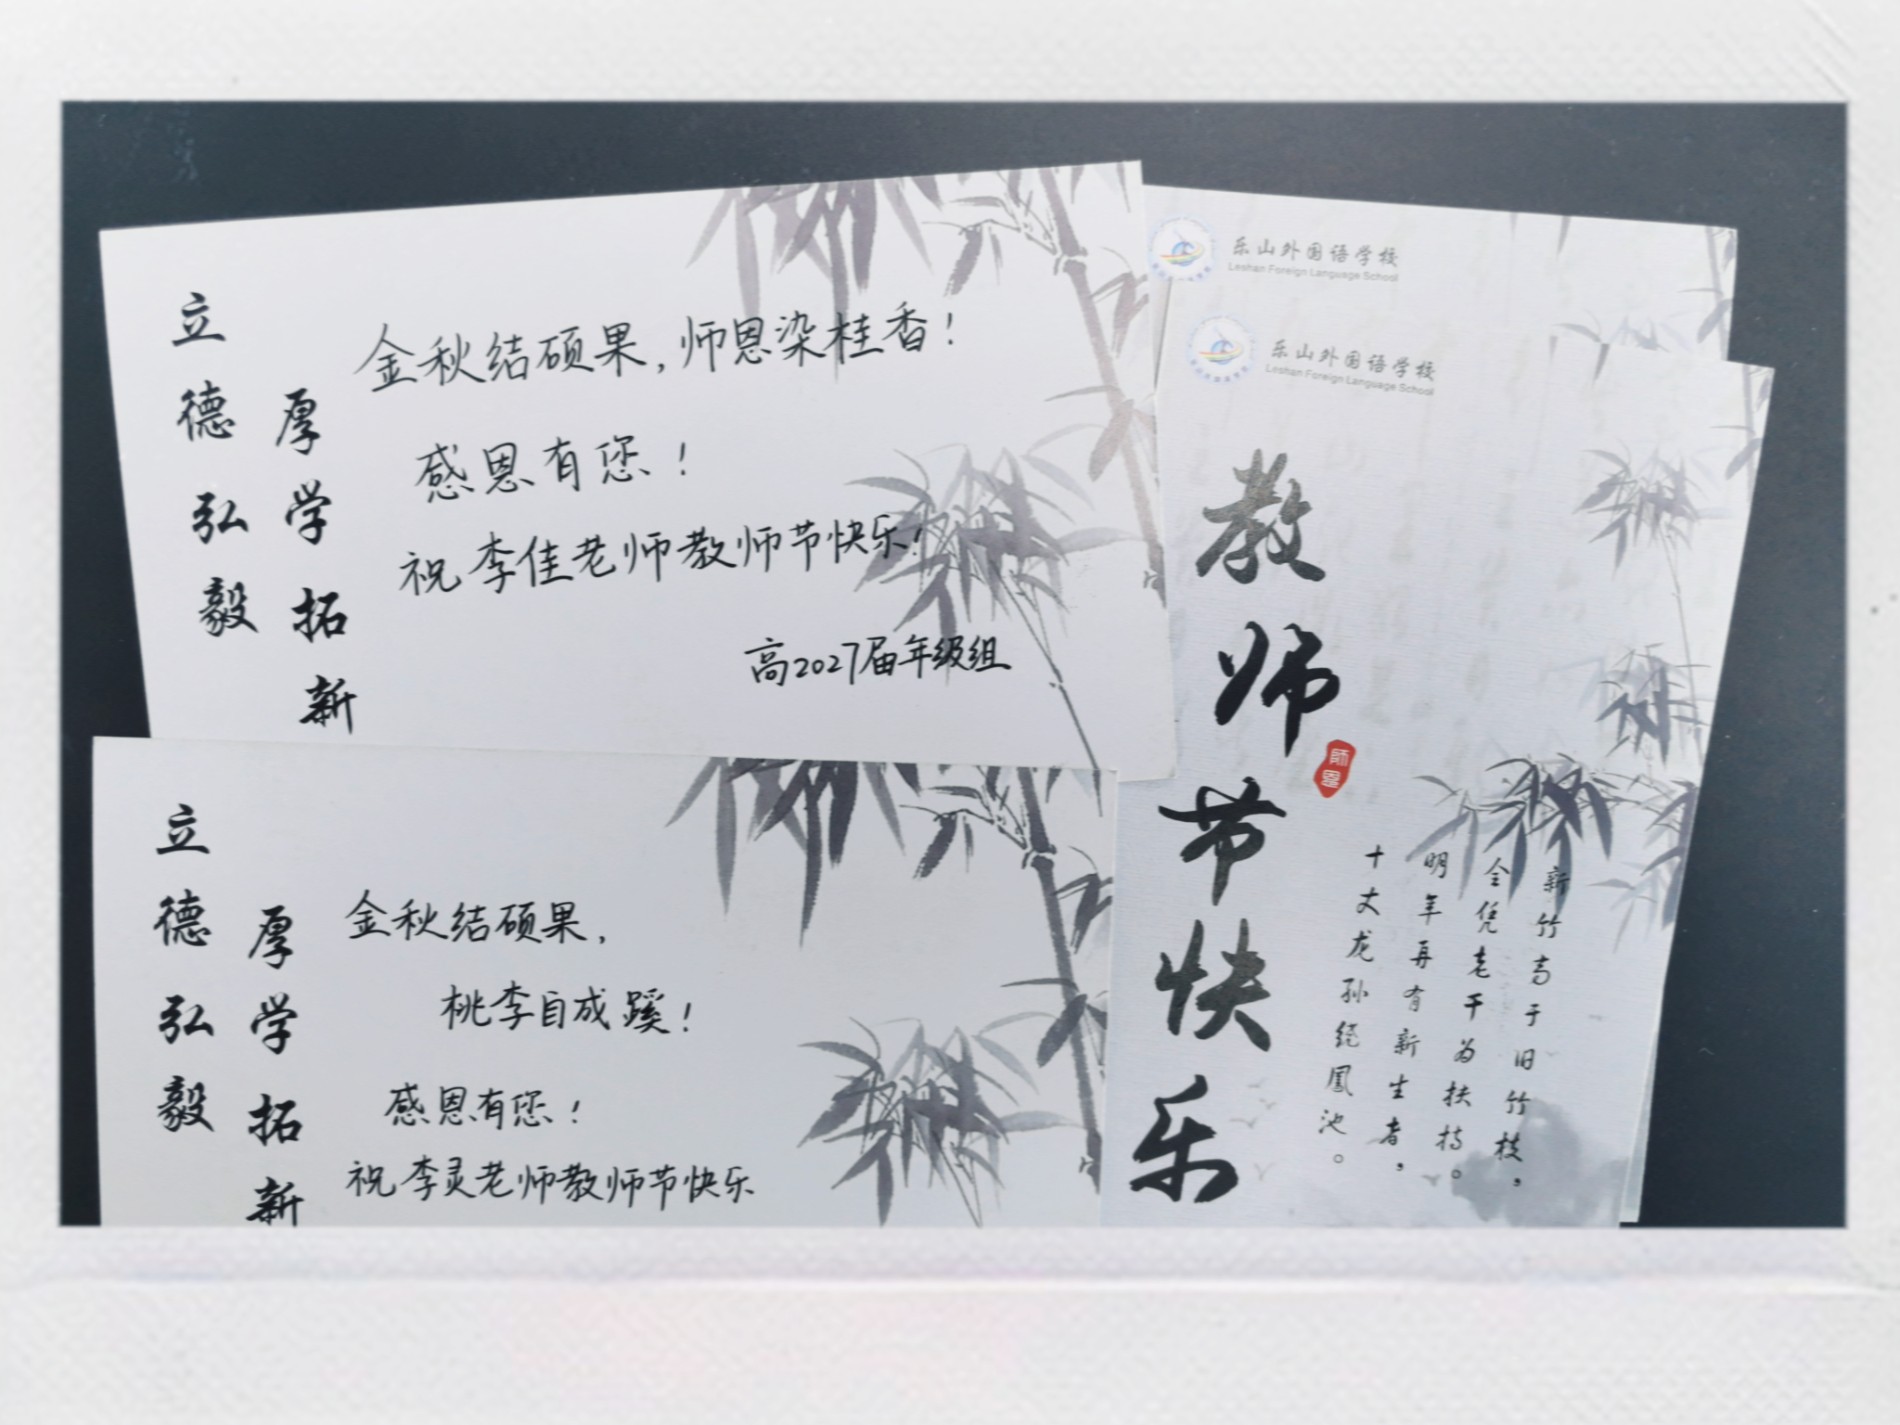 立德弘毅
厚学拓新
金秋结硕果，师恩染桂香！
感恩有您！
祝李佳老师教师节快乐！
高2027届年级组
立德弘毅
厚学拓新
金秋结硕果，
桃李自成蹊！
感恩有您！
祝李灵老师教师节快乐
乐山外国语学校
Leshan Foreign Language School
乐山外国语学校
Leshan Foreign Language School
教师节快乐
師恩
新竹高于旧竹枝，
全凭老干为扶持。
明年再有新生者，
十丈龙孙绕鳳池。